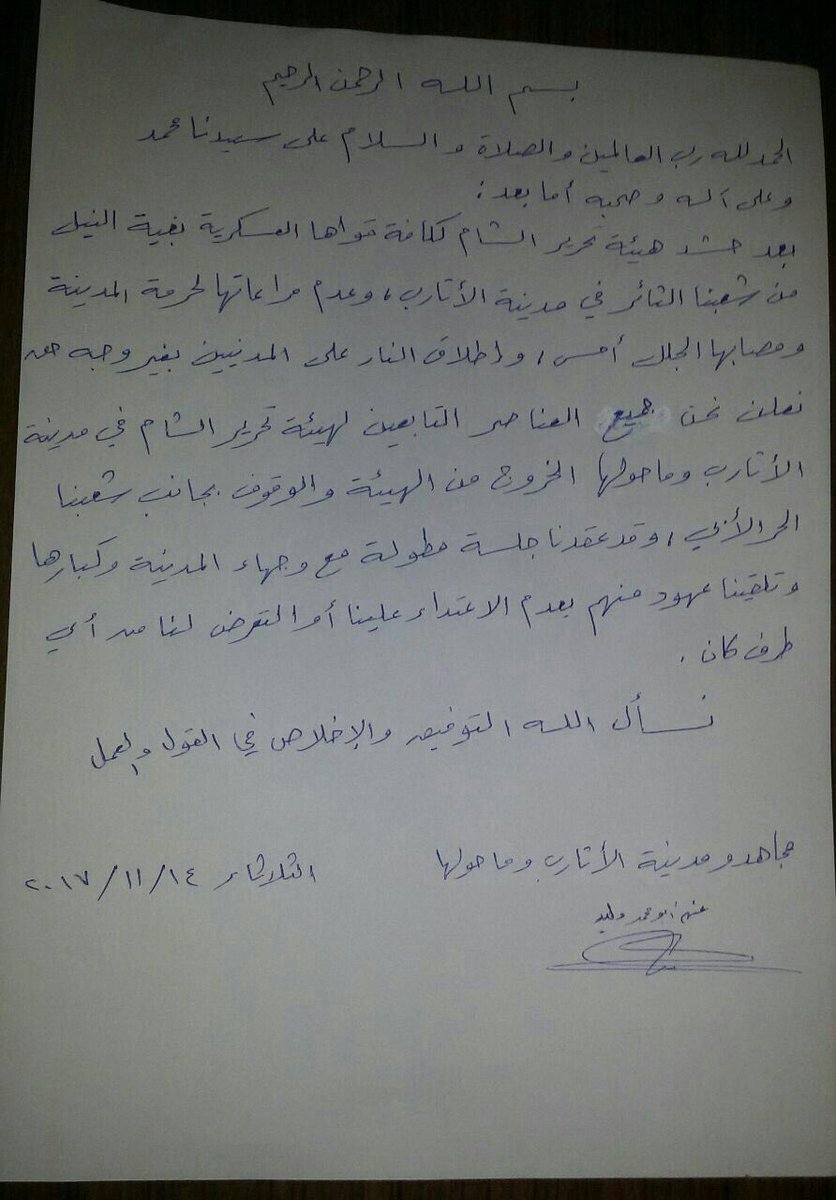 بسم الله الرحمن الرحيم
الحمد لله رب العالمين والصلاة والسلام على سيدنا محمد
وعلى آله وصحبه أما بعد:
بعد حشد هيئة تحرير الشام لكافة قواها العسكرية بغية النيل
من شعبنا الثائر في مدينة الأتارب، وعدم مراعاتها لحرمة المدينة
ومصابها الجلل أمس، وإطلاق النار على المدنيين بغير وجه حق
نعلن نحن جميع العناصر التابعين لهيئة تحرير الشام في مدينة
الأتارب وما حولها الخروج من الهيئة والوقوف بجانب شعبنا
الحر الأبي، وقد عقدنا جلسة مطولة مع وجهاء المدينة وكبارها
وتلقينا عهود منهم بعدم الاعتداء علينا أو التعرض لنا من أي
طرف كان.
نسأل الله التوفيق والإخلاص في القول والعمل
مجاهدو مدينة الأتارب وما حولها
الثلاثاء ٢٠١٧/١١/١٤
عنهم أبو محمد وليد